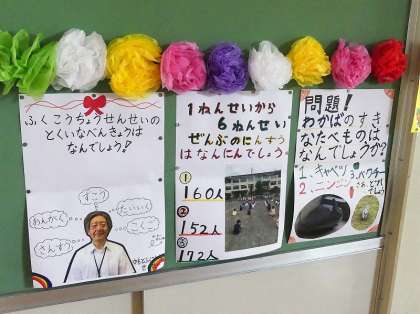 ふくこうちょうせんせいの
とくいなべんきょうは
なんでしょう?
ずこう
たいいく
おんがく
こくご
さんすう
1ねんせいから
6ねんせい
ぜんぶのにんずう
はなんにんでしょう
① 160人
② 152人
③ 172人
問題!
わかばのすき
なたべものは
なんでしょうか?
1、キャベツ
2、ニンジン
3、パクチー